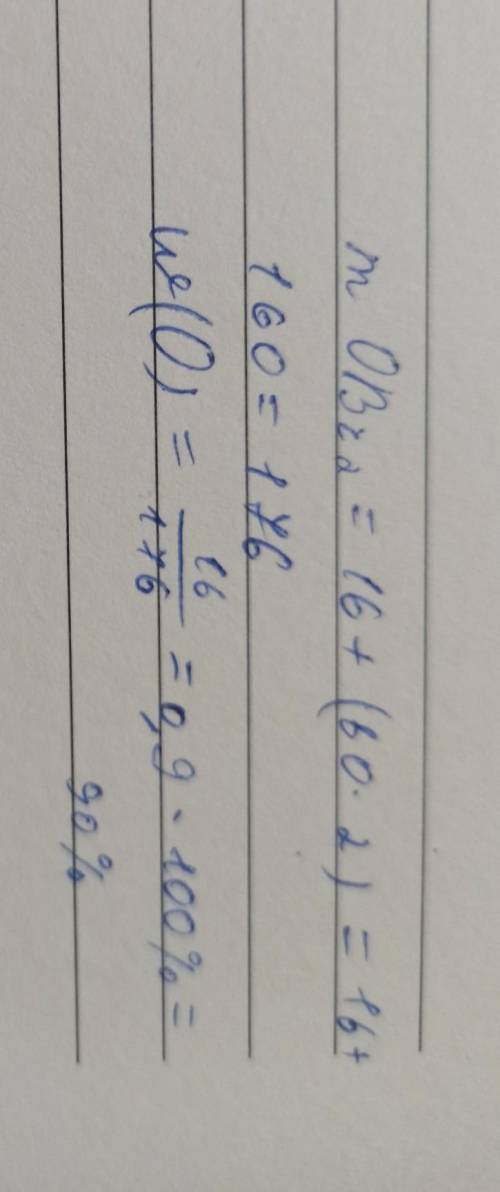 m OBr₂ = 16 + (80 · 2) = 16 +
160 = 176
w(O) = 16/176 = 0,9 · 100% =
90%